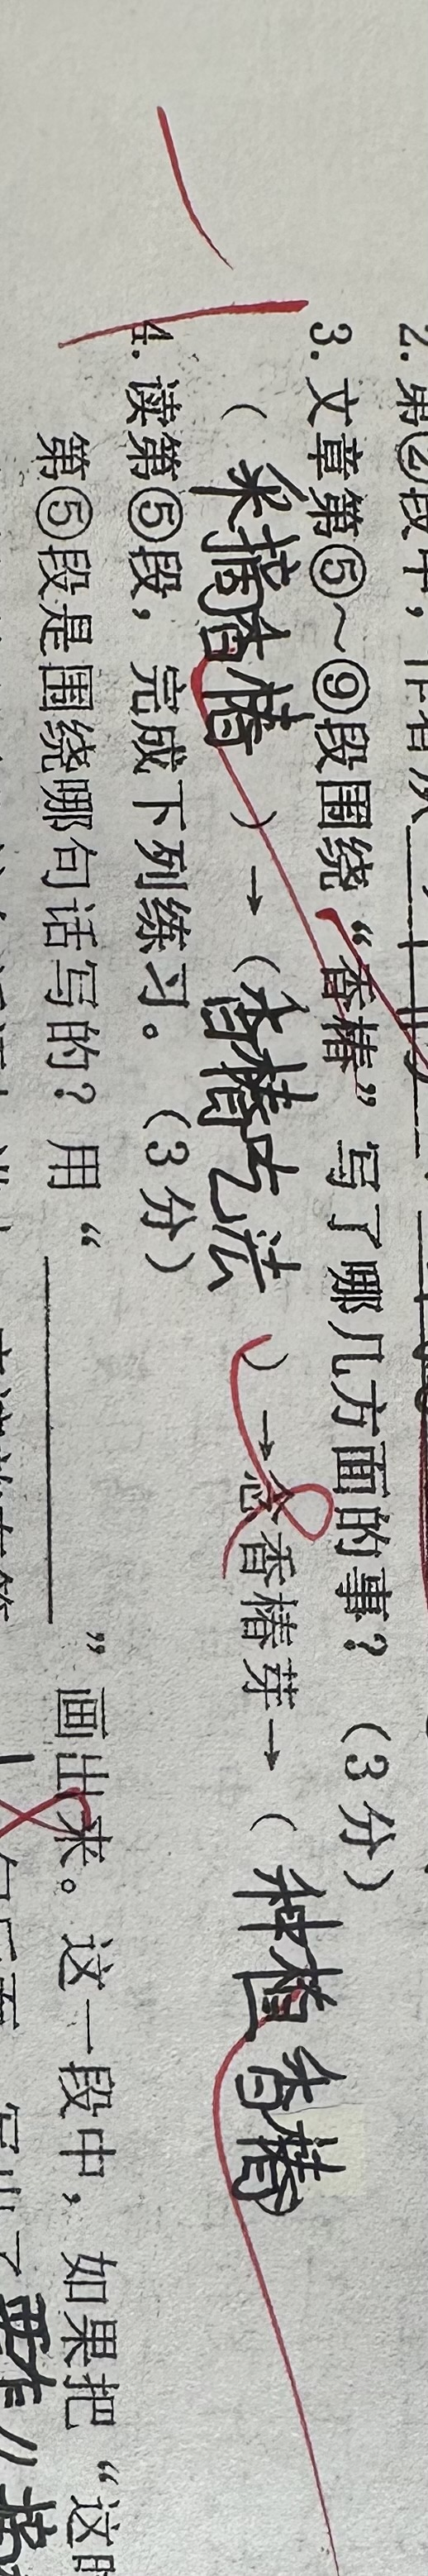 2. 第②段中，作者从
3. 文章第⑤～⑨段围绕“香椿”写了哪几方面的事？（3分）
（采摘香椿）→（香椿吃法）→念香椿芽→（种植香椿
4. 读第⑤段，完成下列练习。（3分）
第⑤段是围绕哪句话写的？用“______”画出来。这一段中，如果把“这